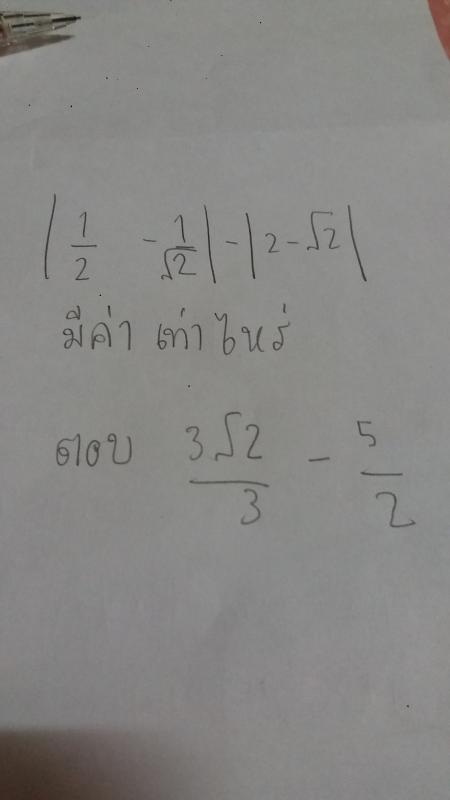 |1/2 - 1/√2| - |2 - √2|
มีค่า เท่าไหร่
ตอบ 3√2/3 - 5/2